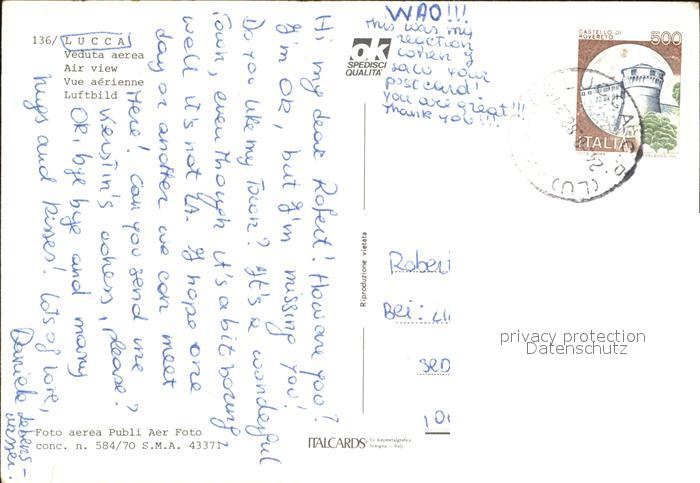 136/ LUCCA
Veduta aerea
Air view
Vue aérienne
Luftbild
Hi my dear Robert! How are you?
I'm OK, but I'm missing you!
Do you like my Town? It's a wonderful
Town, even though it's a bit boring,
well it's not LA. I hope one
day or another we can meet
Here! Can you send me
Kerstin's adress, please?
OK, bye bye and many
hugs and kisses! Lots of love,
Daniele
WAO!!!
This was my
reaction
when I
saw your
postcard!
You are great!!!
Thank you!!!
ok
SPEDISCI
QUALITA'
CASTELLO DI
ROVERETO
500
ITALIA
Riproduzione vietata
Robert
Bei:
privacy protection
Datenschutz
Foto aerea Publi Aer Foto
conc. n. 584/70 S.M.A. 43371
ITALCARDS
by fotometalgrafica
bologna - Italy